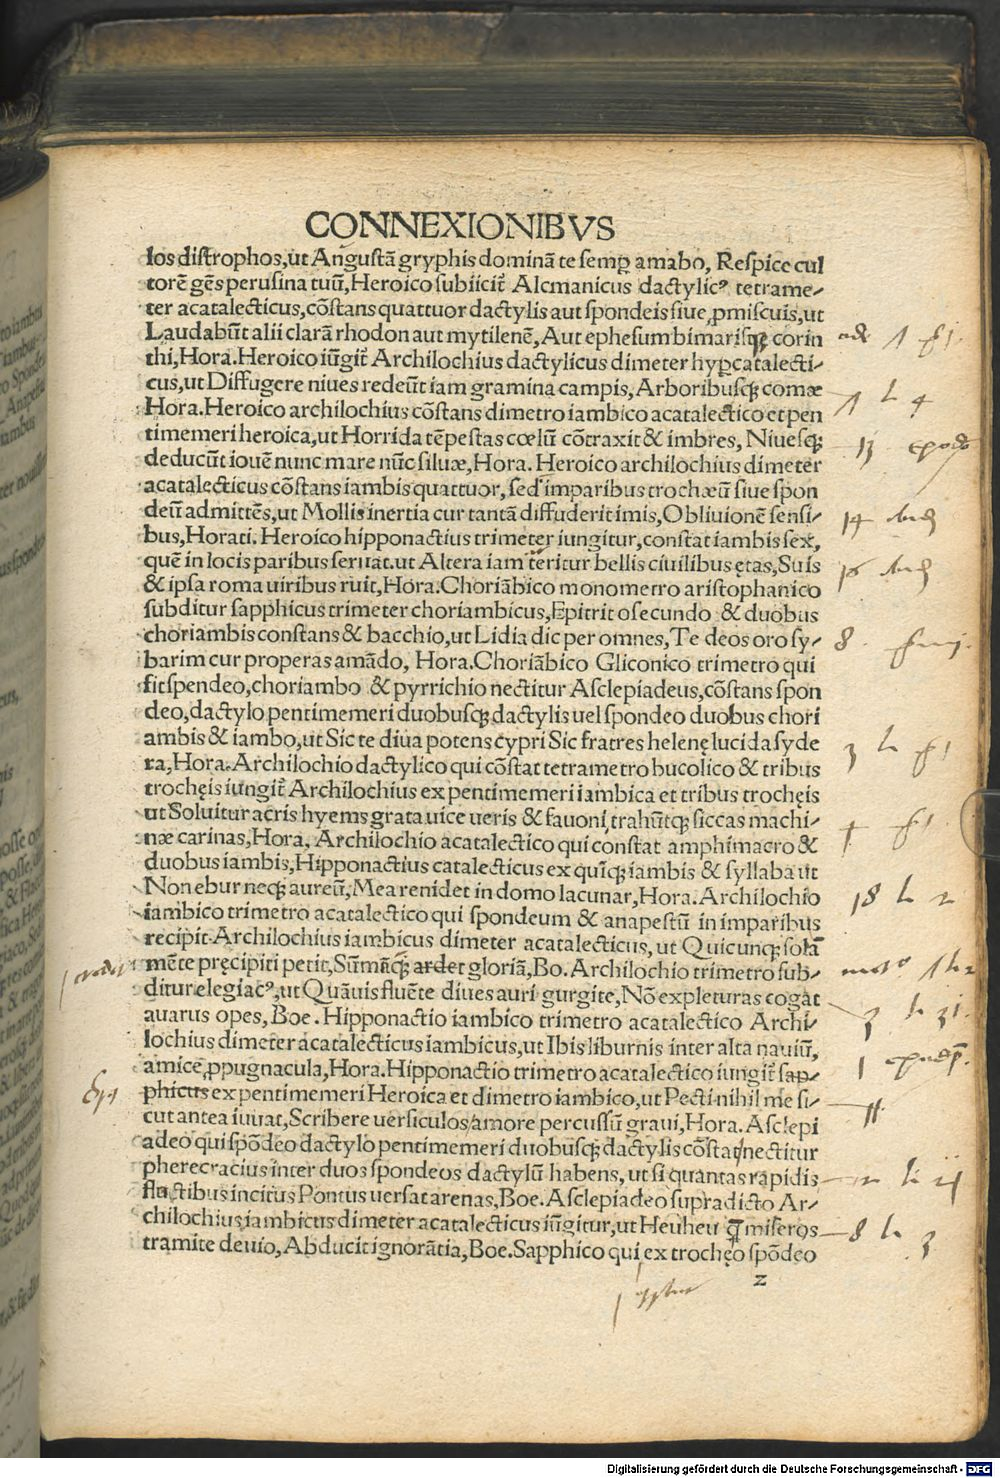 CONNEXIONIBVS
los distrophos,ut Angustā gryphis dominā te semꝑ amabo, Respice cul
torē gēs perusina tuū,Heroico subiicit᷑ Alcmanicus dactylicꝰ tetrame-
ter acatalecticus,cōstans quattuor dactylis aut spondeis siue ꝓmiscuis,ut
Laudabūt alii clarā rhodon aut mytilenē, Aut ephesum bimarisqꝫ corin
thi,Hora.Heroico iūgit᷑ Archilochius dactylicus dimeter hyꝑcatalecti-
cus,ut Diffugere niues redeūt iam gramina campis, Arboribusqꝫ comæ
Hora.Heroico archilochius cōstans dimetro iambico acatalectico et pen
timemeri heroica,ut Horrida tēpestas cœlū cōtraxit & imbres, Niuesqꝫ
deducūt iouē nunc mare nūc siluæ,Hora. Heroico archilochius dimeter
acatalecticus cōstans iambis quattuor, sed imparibus trochæū siue spon
deū admittēs,ut Mollis inertia cur tantā diffuderit imis,Obliuionē sensi-
bus,Horati. Heroico hipponactius trimeter iungitur,constat iambis sex,
quē in locis paribus seruat.ut Altera iam teritur bellis ciuilibus ętas,Suis
& ipsa roma uiribus ruit,Hora.Choriābico monometro aristophanico
subditur sapphicus trimeter choriambicus,Epitrito secundo & duobus
choriambis constans & bacchio,ut Lidia dic per omnes,Te deos oro sy-
barim cur properas amādo, Hora.Choriābico Gliconico trimetro qui
fit spendeo,choriambo & pyrrichio nectitur Asclepiadeus,cōstans spon
deo,dactylo pentimemeri duobusqꝫ dactylis uel spondeo duobus chori
ambis & iambo,ut Sic te diua potens cypri Sic fratres helenę lucida syde
ra,Hora.Archilochio dactylico qui cōstat tetrametro bucolico & tribus
trochęis iungit᷑ Archilochius ex pentimemeri iambica et tribus trochęis
ut Soluitur acris hyems grata uice ueris & fauoni,trahūtqꝫ siccas machi-
næ carinas,Hora, Archilochio acatalectico qui constat amphimacro &
duobus iambis,Hipponactius catalecticus ex quīqꝫ iambis & syllaba ut
Non ebur neqꝫ aureū,Mea renidet in domo lacunar,Hora.Archilochio
iambico trimetro acatalectico qui spondeum & anapestū in imparibus
recipit.Archilochius iambicus dimeter acatalecticus, ut Quicunqꝫ solā
mēte pręcipiti petit,Sūmāqꝫ ardet gloriā,Bo.Archilochio trimetro sub-
ditur elegiacꝰ,ut Quāuis fluēte diues auri gurgite,Nō expleturas cogat
auarus opes, Boe. Hipponactio iambico trimetro acatalectico Archi-
lochius dimeter acatalecticus iambicus,ut Ibis liburnis inter alta nauiū,
amice,ꝓpugnacula,Hora.Hipponactio trimetro acatalectico iungit᷑ sap-
phicus ex pentimemeri Heroica et dimetro iambico,ut Pecti nihil me si-
cut antea iuuat,Scribere uersiculos amore percussū graui,Hora.Asclepi
adeo qui spōdeo dactylo pentimemeri duobusqꝫ dactylis cōstat nectitur
pherecracius inter duos spondeos dactylū habens, ut si quantas rapidis
fluctibus incitus Pontus uersat arenas,Boe.Asclepiadeo supradicto Ar-
chilochius iambicus dimeter acatalecticus iūgitur,ut Heuheu q̄ miseros
tramite deuio,Abducit ignorātia,Boe.Sapphico qui ex trochęo spōdeo
z
Digitalisierung gefördert durch die Deutsche Forschungsgemeinschaft - DFG